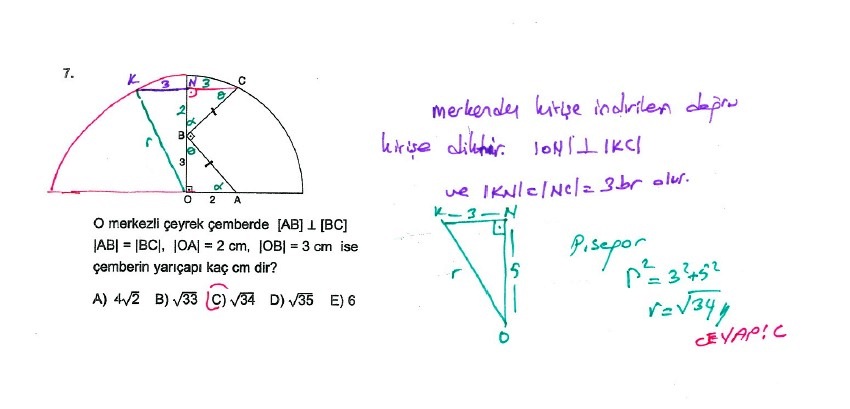 7.
K 3 N 3 C
θ
2
α
r
B
θ
3
α
O 2 A
O merkezli çeyrek çemberde [AB] ⊥ [BC]
|AB| = |BC|, |OA| = 2 cm, |OB| = 3 cm ise
çemberin yarıçapı kaç cm dir?
A) 4√2 B) √33 C) √34 D) √35 E) 6
merkezden kirişe indirilen doğru
kirişe diktir. |ON| ⊥ |KC|
ve |KN|=|NC|=3 br olur.
K – 3 – N
r
5
O
Pisagor
r² = 3²+5²
r = √34
CEVAP: C